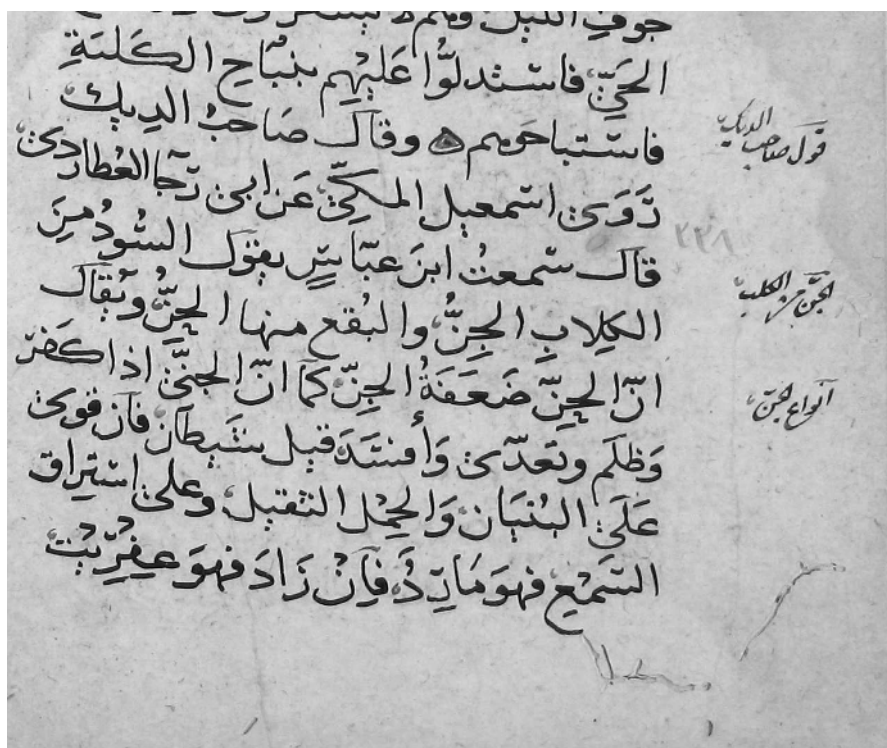 جوف الليل
الحَيِّ فاستدلّوا عَلَيْهِم بنباحِ الكلبَةِ
فاستباحوهم ۞ وقال صَاحبُ الديك
رَوَى اسمعيل المكيّ عَن ابى رَجا العُطاردىّ
قال سَمعتُ ابنَ عبّاسٍ يقول السُّودُ مِنَ
الكِلابِ الجِنُّ والبُقع منها الحِنُّ ويُقال
انّ الحِنّ ضَعَفَةُ الجِنّ كما انّ الجنىَّ اذا كفرَ
وَظلَم وتَعَدّى وَأفسَدَ قيل شيطَان فان قوى
عَلَى البُنيَان وَالحِمْل الثقيل وعلى استراق
السَّمْعِ فهوَ مَارِدٌ فَاِنْ زَادَ فهوَ عِفْرِيْتٌ
قول صاحب الديك
٢٢٨
الجن من الكلب
أنواع الجن